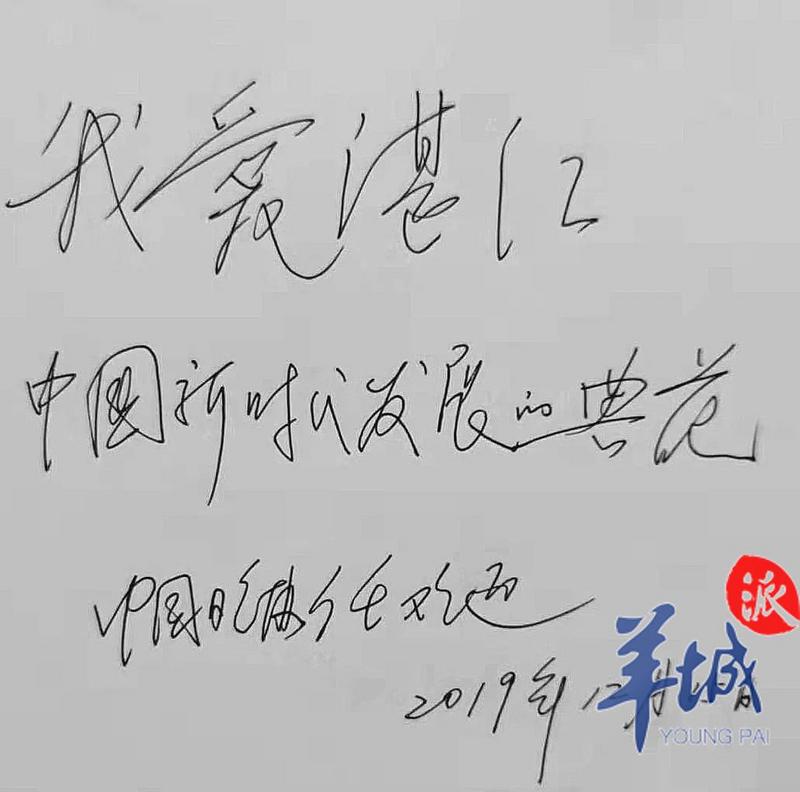 我爱湛江
中國新时代发展的典范
中国晚协任
2019年12月
羊城
派
YOUNG PAI